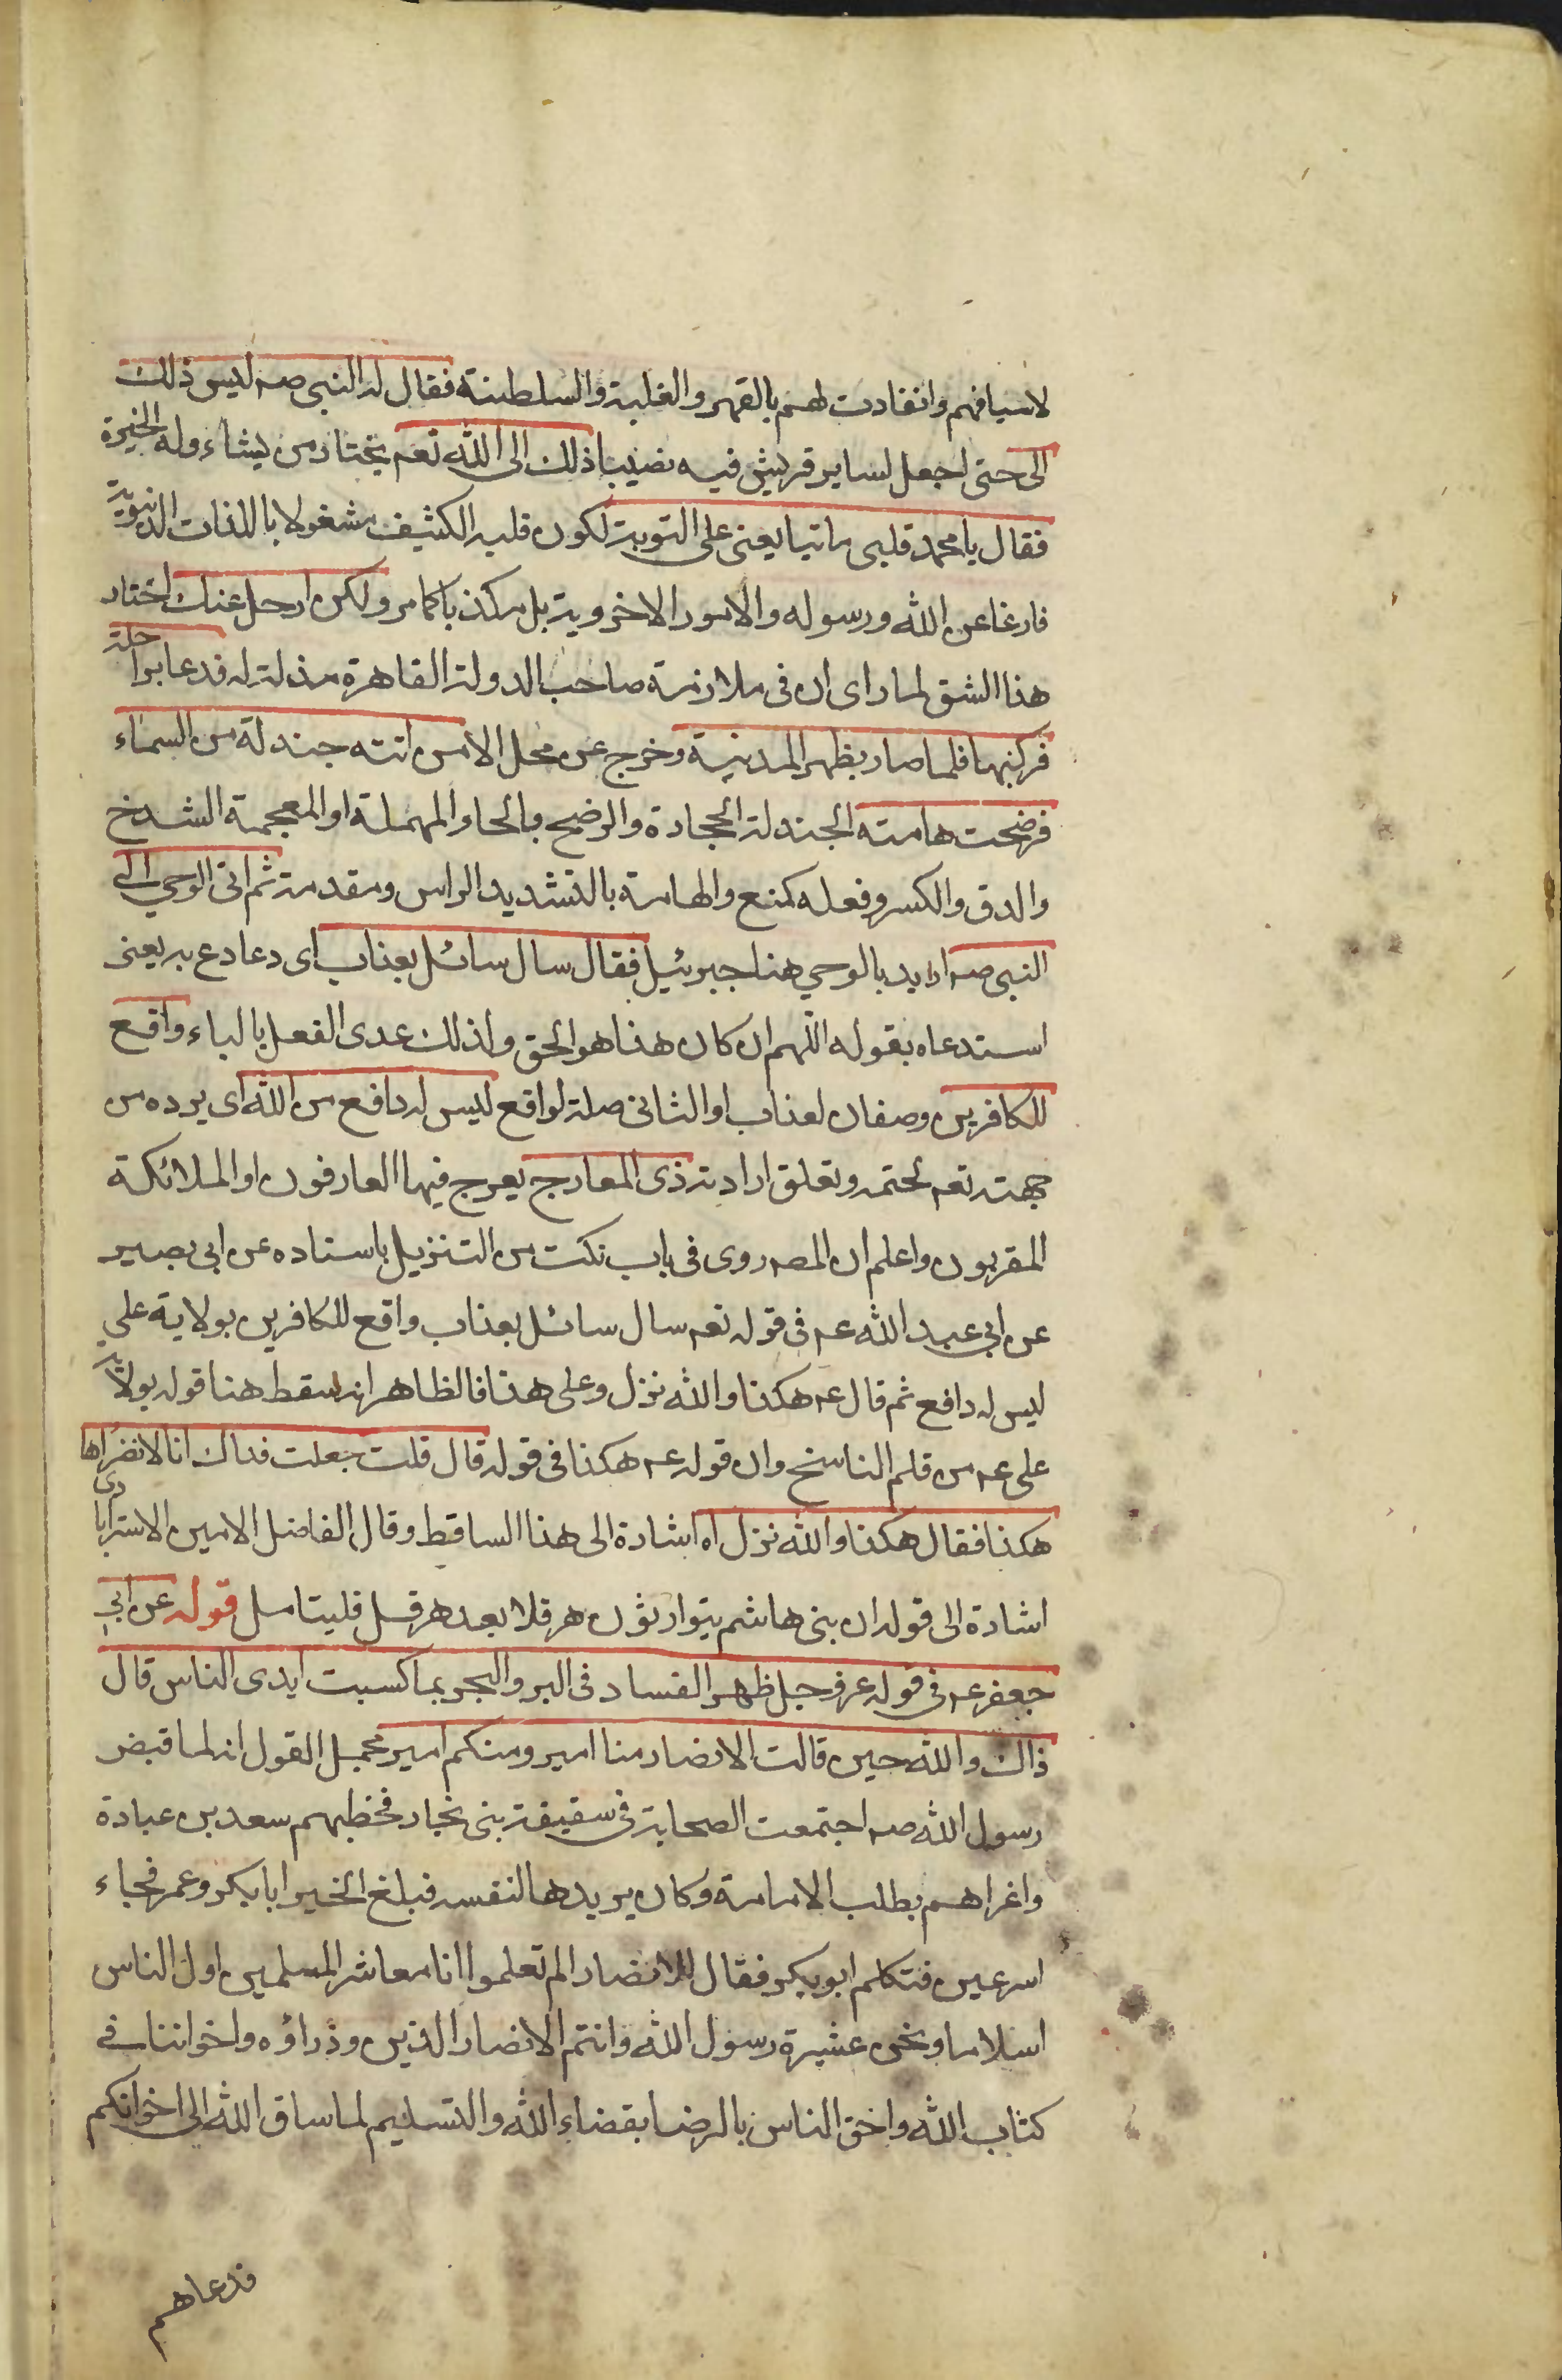 لاسيافهم وانقادت لهم بالقهر والغلبة والسلطنة فقال له النبي صه ليس ذلك
الى حتى اجعل لساير قريش فيه نصيبا ذلك الى الله تعم يختار من يشاء وله الخيرة
فقال يا محمد قلبى ما تيابعنى على التوبة لكون قلبه الكثيف مشغولا باللذات الدنيوية
فارغا عن الله ورسوله والامور الاخروية بل مكذبا كما مر ولكن ارحل عنك اختار
هذا الشق لما راى ان فى ملازمة صاحب الدولة القاهرة مذلة له فدعا براحلة
فركبها فلما صار بظهر المدينة وخرج عن محل الامن اتته جندلة من السماء
فرضحت هامته الجندلة الحجارة والرضح بالحاء المهملة او المعجمة الشدخ
والدق والكسر وفعله كمنع والهامة بالتشديد الراس ومقدمته ثم اتى الوحي الى
النبى صه اريد بالوحي هنا جبرئيل فقال سال سائل بعذاب اى دعا داع به يعنى
استدعاه بقوله اللهم ان كان هذا هو الحق ولذلك عدى الفعل بالباء واقع
للكافرين وصفان لعذاب او الثانى صلة لواقع ليس له دافع من الله اى يرده من
جهته تعم لحتمه وتعلق ارادته ذى المعارج يعرج فيها العارفون او الملائكة
المقربون واعلم ان المصه روى فى باب نكت من التنزيل باسناده عن ابى بصير
عن ابي عبد الله عه فى قوله تعم سال سائل بعذاب واقع للكافرين بولاية علي
ليس له دافع ثم قال عه هكذا والله نزل وعلى هذا فالظاهر انه سقط هنا قوله بولاية
على عه من قلم الناسخ وان قوله عه هكذا فى قوله قال قلت جعلت فداك انا لا نقراها
هكذا فقال هكذا والله نزل اه اشارة الى هذا الساقط وقال الفاضل الامين الاسترابادى
اشارة الى قوله ان بنى هاشم يتوارثون هرقلا بعد هرقل فليتامل قوله عن ابي
جعفر عه فى قوله عز وجل ظهر الفساد فى البر والبحر بما كسبت ايدى الناس قال
ذاك والله حين قالت الانصار منا امير ومنكم امير مجمل القول انه لما قبض
رسول الله صه اجتمعت الصحابة في سقيفة بنى نجار فخطبهم سعد بن عبادة
واغراهم بطلب الامامة وكان يريدها لنفسه فبلغ الخبر ابا بكر وعمر فجاء
اسرعين فتكلم ابو بكر فقال للانصار الم تعلموا انا معاشر المسلمين اول الناس
اسلاما ونحن عشيرة رسول الله وانتم الانصار الذين وذراؤه واخواننا فى
كتاب الله واحق الناس بالرضا بقضاء الله والتسليم لما ساق الله الى اخوانكم
فدعاهم